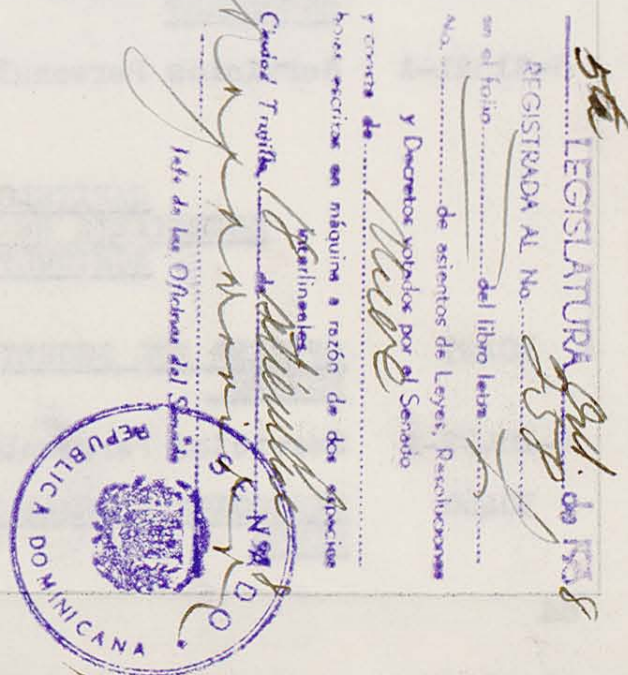 5ta LEGISLATURA Ord. de 1958
REGISTRADA AL No. 258
en el folio del libro letra
No. de asientos de Leyes, Resoluciones
y Decretos votados por el Senado
y consta de nueve
hojas escritas en máquina a razón de dos espacios
interlineales
Ciudad Trujillo de 1958
Jefe de las Oficinas del Senado
SENADO
REPUBLICA DOMINICANA